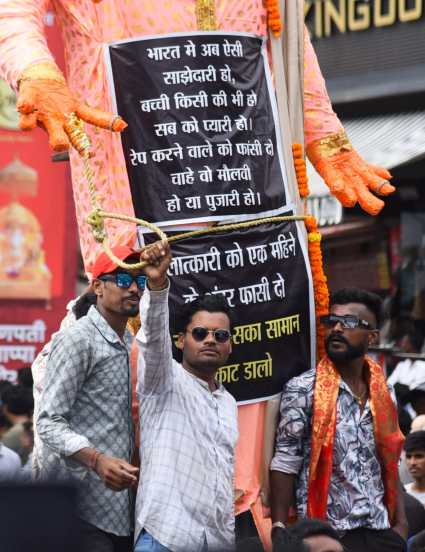 KINGDO
भारत मे अब ऐसी
साझेदारी हो,
बच्ची किसी की भी हो
सब को प्यारी हो।
रेप करने वाले को फांसी दो
चाहे वो मौलवी
हो या पुजारी हो।
लात्कारी को एक महिने
के अंदर फासी दो
सका सामान
काट डालो
णपती
प्पा